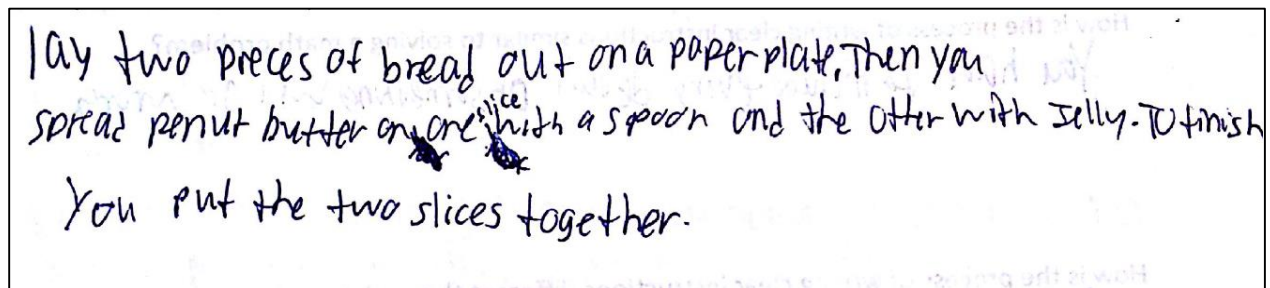 lay two pieces of bread out on a paper plate. Then you
spread penut butter on one slice with a spoon and the otter with Jelly. To finish
You put the two slices together.